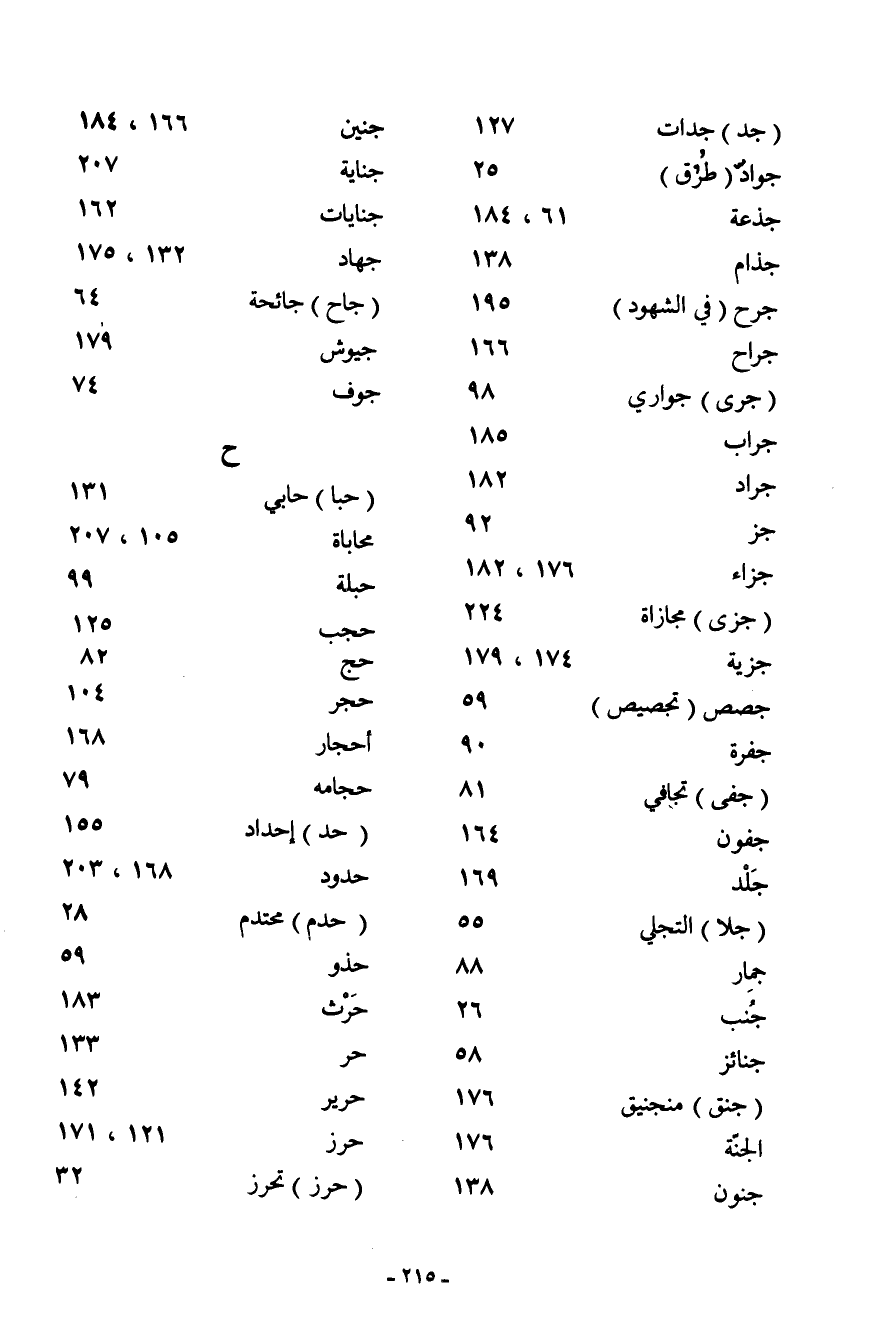 ( جد ) جدات ١٢٧
جوادّ ( طُرُق ) ٢٥
جذعة ٦١ ، ١٨٤
جذام ١٣٨
جرح ( في الشهود ) ١٩٥
جراح ١٦٦
( جرى ) جواري ٩٨
جراب ١٨٥
جراد ١٨٢
جز ٩٢
جزاء ١٧٦ ، ١٨٢
( جزى ) مجازاة ٢٢٤
جزية ١٧٤ ، ١٧٩
جصص ( تجصيص ) ٥٩
جفرة ٩٠
( جفى ) تجافي ٨١
جفون ١٦٤
جَلْد ١٦٩
( جلا ) التجلي ٥٥
جِمار ٨٨
جُنب ٢٦
جنائز ٥٨
( جنق ) منجنيق ١٧٦
الجنّة ١٧٦
جنون ١٣٨
جنين ١٦٦ ، ١٨٤
جناية ٢٠٧
جنايات ١٦٢
جهاد ١٣٢ ، ١٧٥
( جاح ) جائحة ٦٤
جيوش ١٧٩
جوف ٧٤
ح
( حبا ) حابي ١٣١
محاباة ١٠٥ ، ٢٠٧
حبلة ٩٩
حجب ١٢٥
حج ٨٢
حجر ١٠٤
أحجار ١٦٨
حجامه ٧٩
( حد ) إحداد ١٥٥
حدود ١٦٨ ، ٢٠٣
( حدم ) محتدم ٢٨
حذو ٥٩
حَرْث ١٨٣
حر ١٣٣
حرير ١٤٢
حرز ١٢١ ، ١٧١
( حرز ) تحرز ٣٢
ـ ٢١٥ ـ